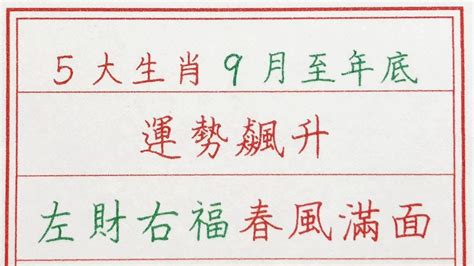 5大生肖9月至年底
運勢飆升
左財右福春風滿面